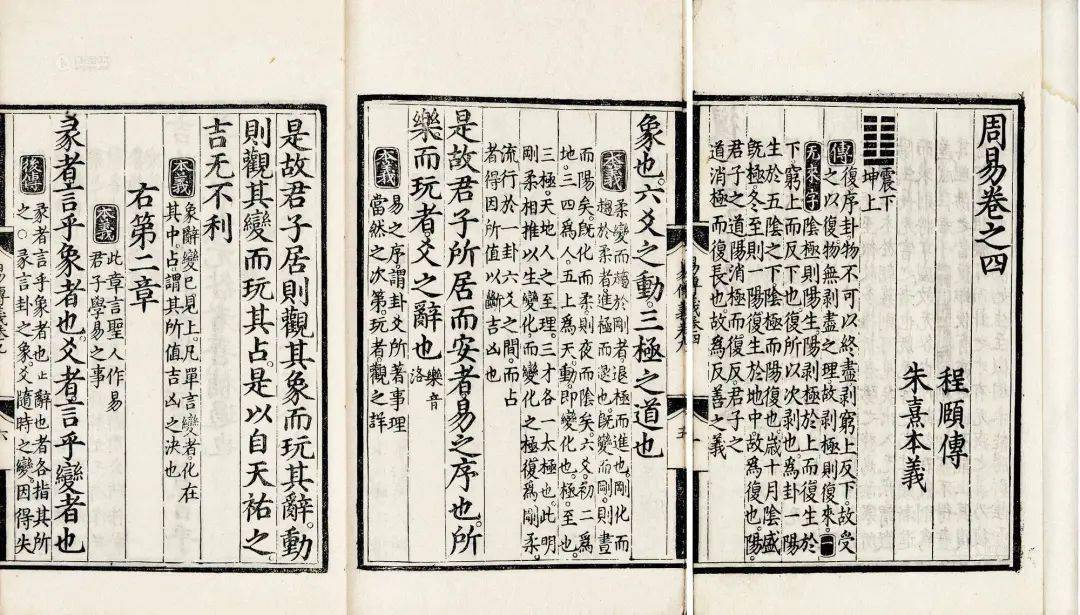 周易卷之四
程頤傳
朱熹本義
震下
坤上
傳 復序卦物不可以終盡剝窮上反下。故受
之以復物無剝盡之理故剝極則復來。一
无來字 陰極則陽生陽剝極於上而復生於
下。窮上而反下也。復所以次剝也。爲卦一陽
生於五陰之下。陰極而陽復也。歲十月陰盛
旣極。冬至則一陽復生於地中。故爲復也。陽。
君子之道。陽消極而復反。君子之
道消極而復長也。故爲反善之義
象也。六爻之動。三極之道也
本義 柔變而趨於剛者。退極而進也。剛化而
趨於柔者。進極而退也。旣變而剛。則晝
而陽矣。旣化而柔。則夜而陰矣。六爻。初二爲
地。三四爲人。五上爲天。動。即變化也。極。至也
三極。天地人之至理。三才各一太極也。此明
剛柔相推以生變化。而變化之極。復爲剛柔。
流行於一卦六爻之間。而占
者得因所值以斷吉凶也
是故君子所居而安者易之序也。所
樂而玩者爻之辭也 樂音洛
本義 易之序。謂卦爻所著事理
當然之次第。玩者觀之詳
是故君子居則觀其象而玩其辭。動
則觀其變而玩其占。是以自天祐之。
吉无不利
本義 象辭變已見上。凡單言變者。化在
其中。占謂其所值吉凶之決也
右第二章
本義 此章言聖人作易
君子學易之事
彖者言乎象者也。爻者言乎變者也
後傳 彖者言乎象者也。止辭也者各指其所
之。○彖言卦之象。爻隨時之變。因得失